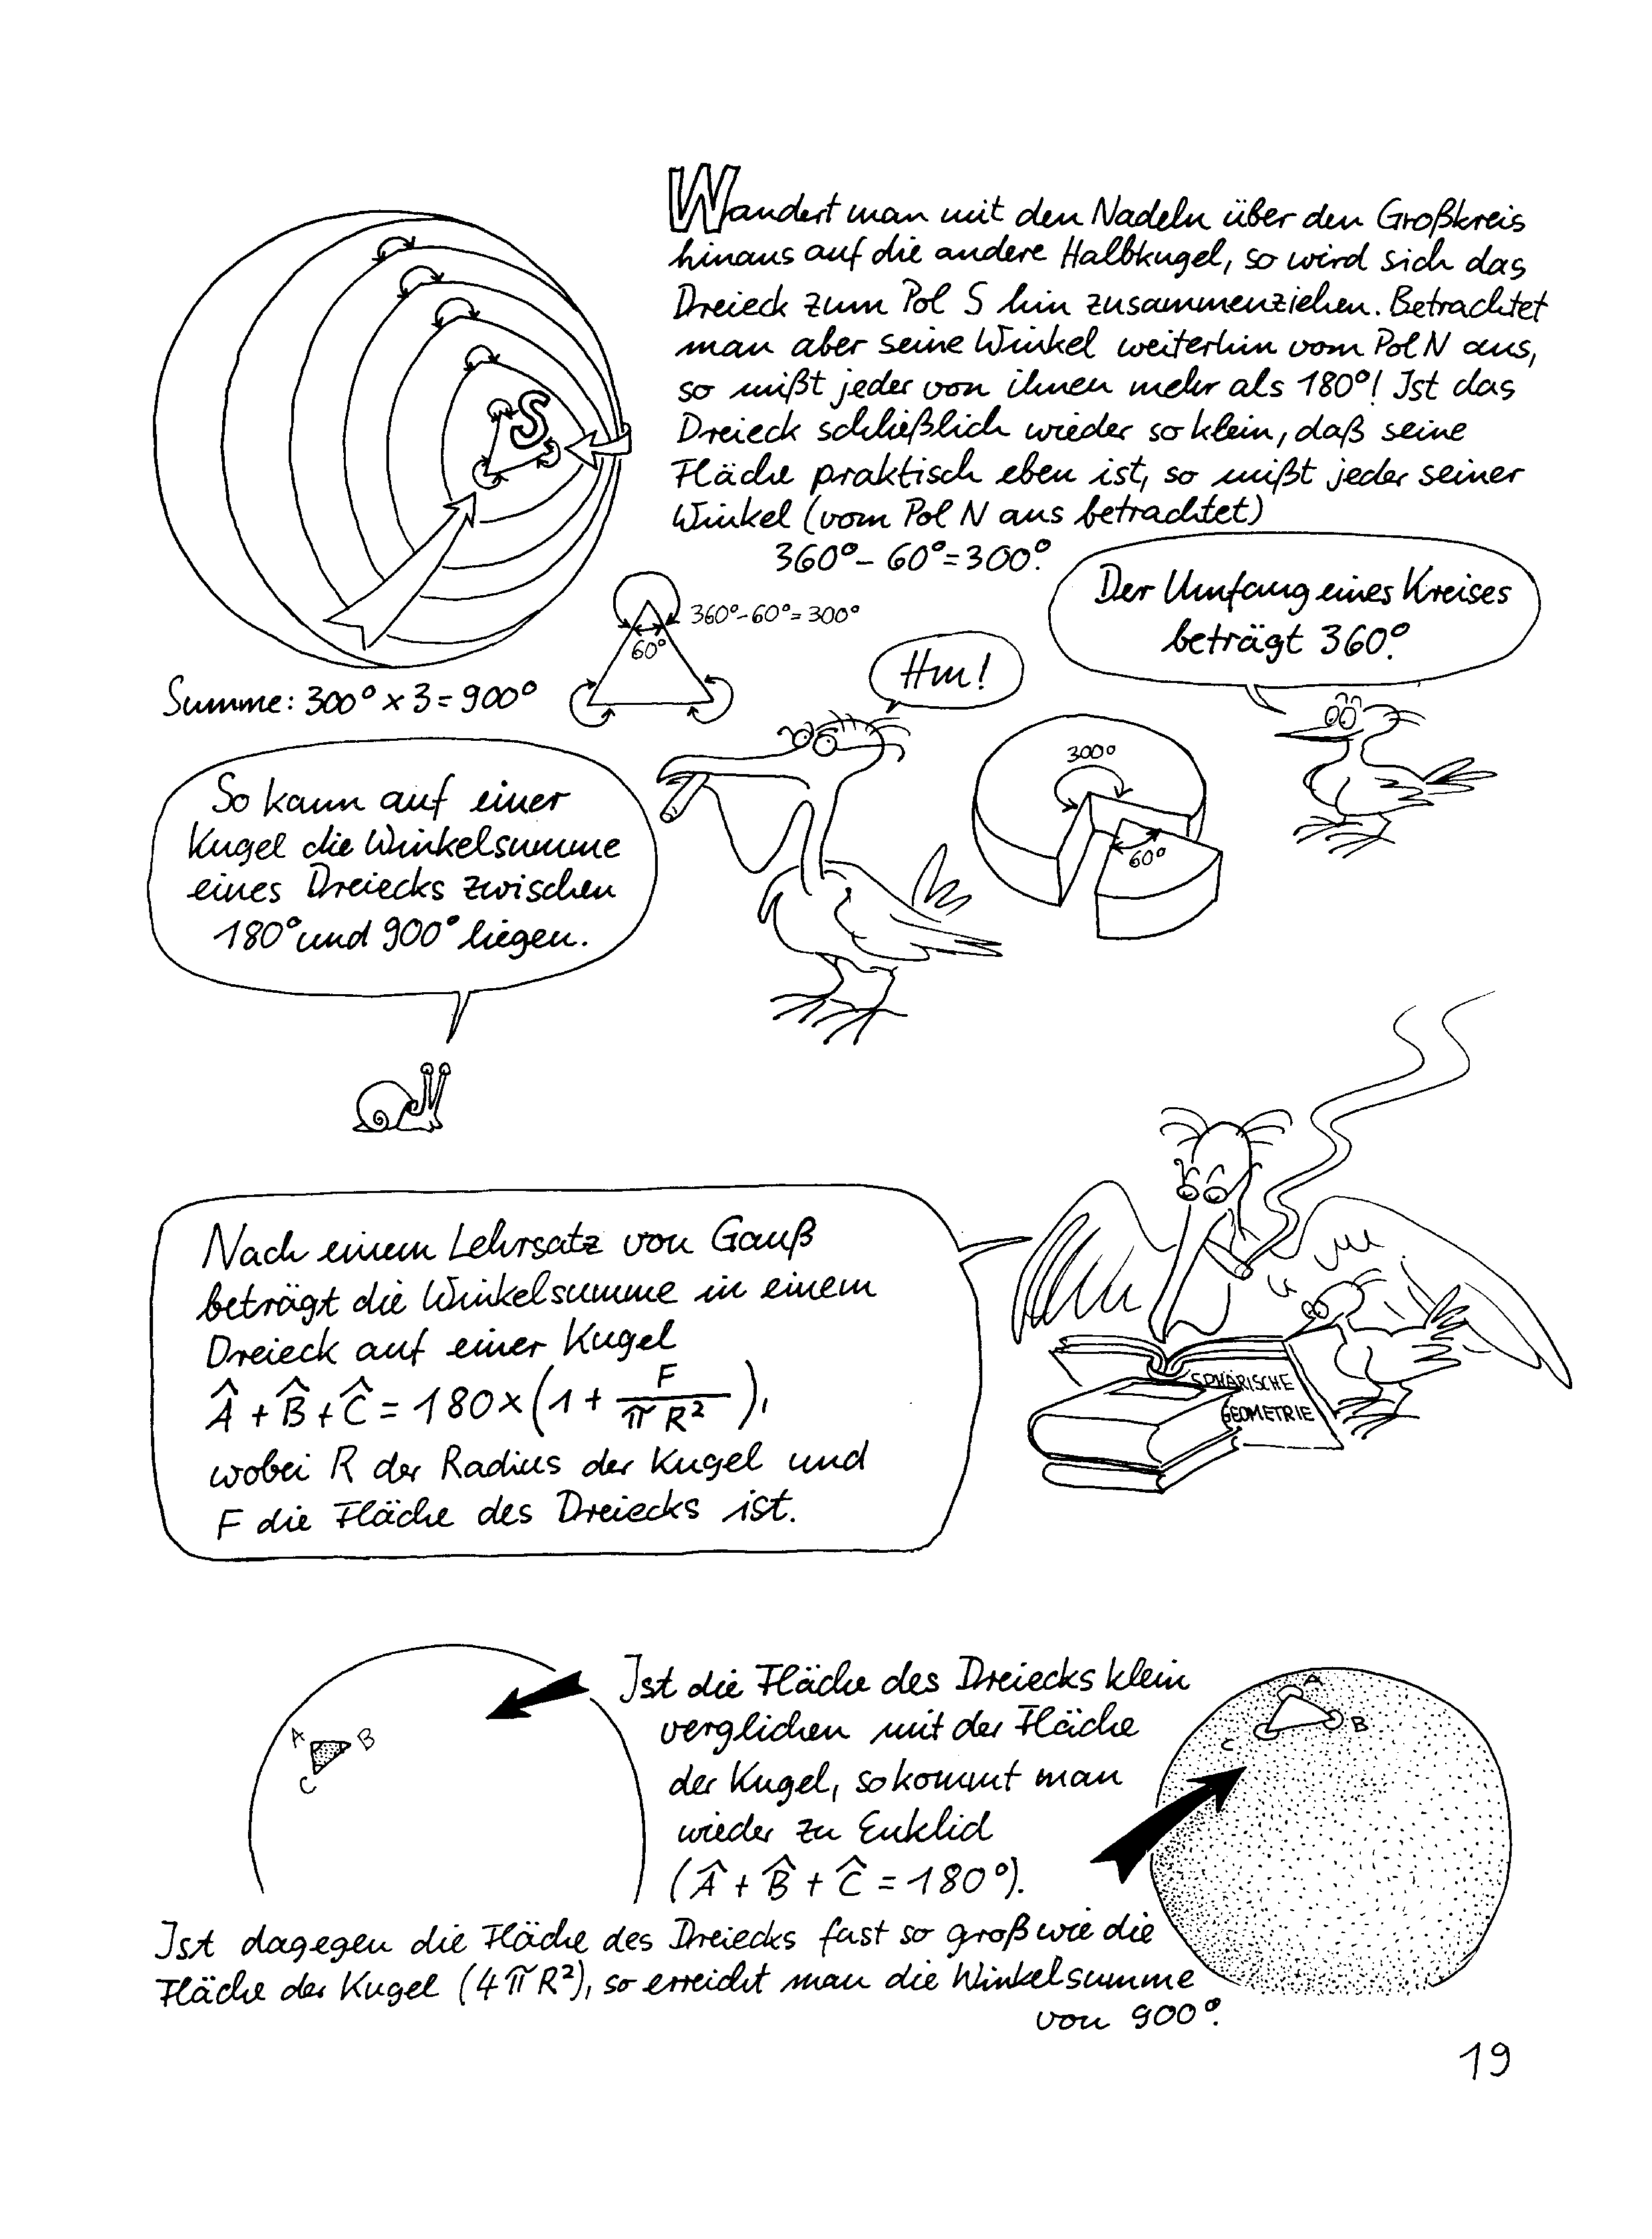 Wandert man mit den Nadeln über den Großkreis
hinaus auf die andere Halbkugel, so wird sich das
Dreieck zum Pol S hin zusammenziehen. Betrachtet
man aber seine Winkel weiterhin vom Pol N aus,
so mißt jeder von ihnen mehr als 180°! Ist das
Dreieck schließlich wieder so klein, daß seine
Fläche praktisch eben ist, so mißt jeder seiner
Winkel (vom Pol N aus betrachtet)
360° - 60° = 300°.
S
360° - 60° = 300°
60°
Summe: 300° × 3 = 900°
Hm!
Der Umfang eines Kreises
beträgt 360°.
300°
60°
So kann auf einer
Kugel die Winkelsumme
eines Dreiecks zwischen
180° und 900° liegen.
Nach einem Lehrsatz von Gauß
beträgt die Winkelsumme in einem
Dreieck auf einer Kugel
Â + B̂ + Ĉ = 180 × (1 + F / π R²),
wobei R der Radius der Kugel und
F die Fläche des Dreiecks ist.
SPHÄRISCHE
GEOMETRIE
A B
C
Ist die Fläche des Dreiecks klein
verglichen mit der Fläche
der Kugel, so kommt man
wieder zu Euklid
(Â + B̂ + Ĉ = 180°).
A
B
C
Ist dagegen die Fläche des Dreiecks fast so groß wie die
Fläche der Kugel (4 π R²), so erreicht man die Winkelsumme
von 900°.
19